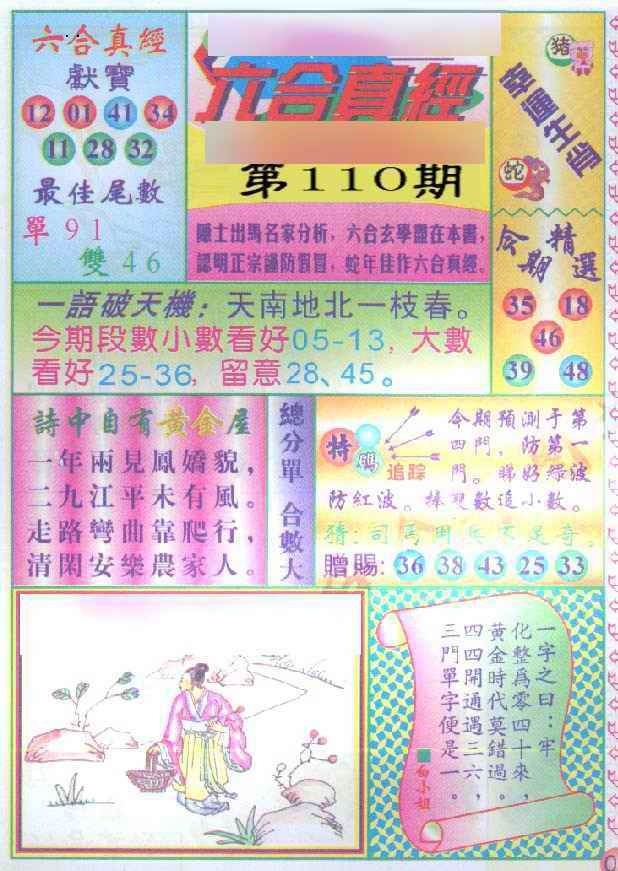 六合真經
獻寶
12 01 41 34
11 28 32
最佳尾數
單91
雙46
六合真經
第110期
隱士出馬名家分析，六合玄學盡在本書，
認明正宗謹防假冒，蛇年佳作六合真經。
猪
蛇
今期精選
35 18
46
39 48
一語破天機：天南地北一枝春。
今期段數小數看好05-13，大數
看好25-36，留意28、45。
詩中自有黃金屋
一年兩見鳳嬌貌，
二九江平未有風。
走路彎曲靠爬行，
清閑安樂農家人。
總分單 合數大
特碼
追踪
今期預測于第
四門，防第一
門。睇好綠波
防紅波。捧雙數追小數。
猜：司馬用兵不足奇。
贈賜：36 38 43 25 33
一字之曰：牢
化整爲零四十來，
黃金時代莫錯過。
四四開通遇三六，
三門單字便是一。
白小姐